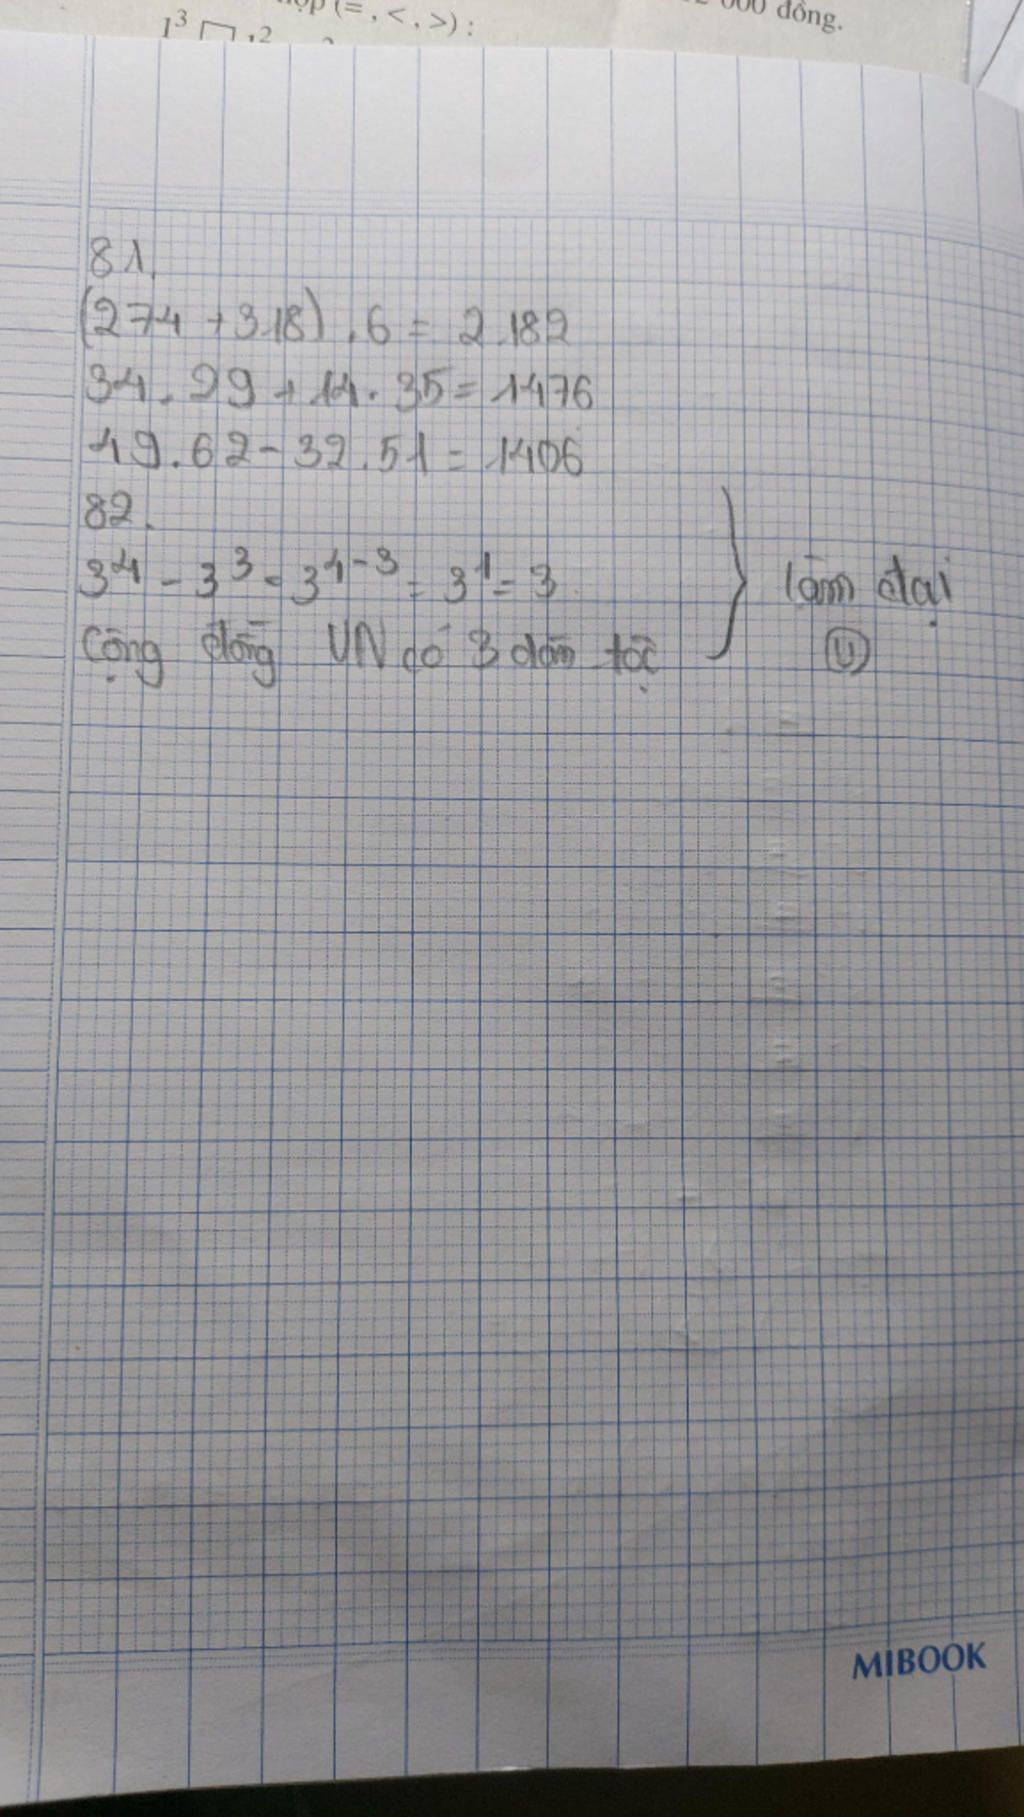 (=, <, >) :
000 đồng.
1³ 2
81.
(274 + 318) . 6 = 2182
34 . 29 + 14 . 35 = 1476
49.62 - 32.51 = 1406
82.
3⁴ - 3³ = 3⁴⁻³ = 3¹ = 3
Cộng đồng VN có 3 dân tộc
làm đại
MIBOOK